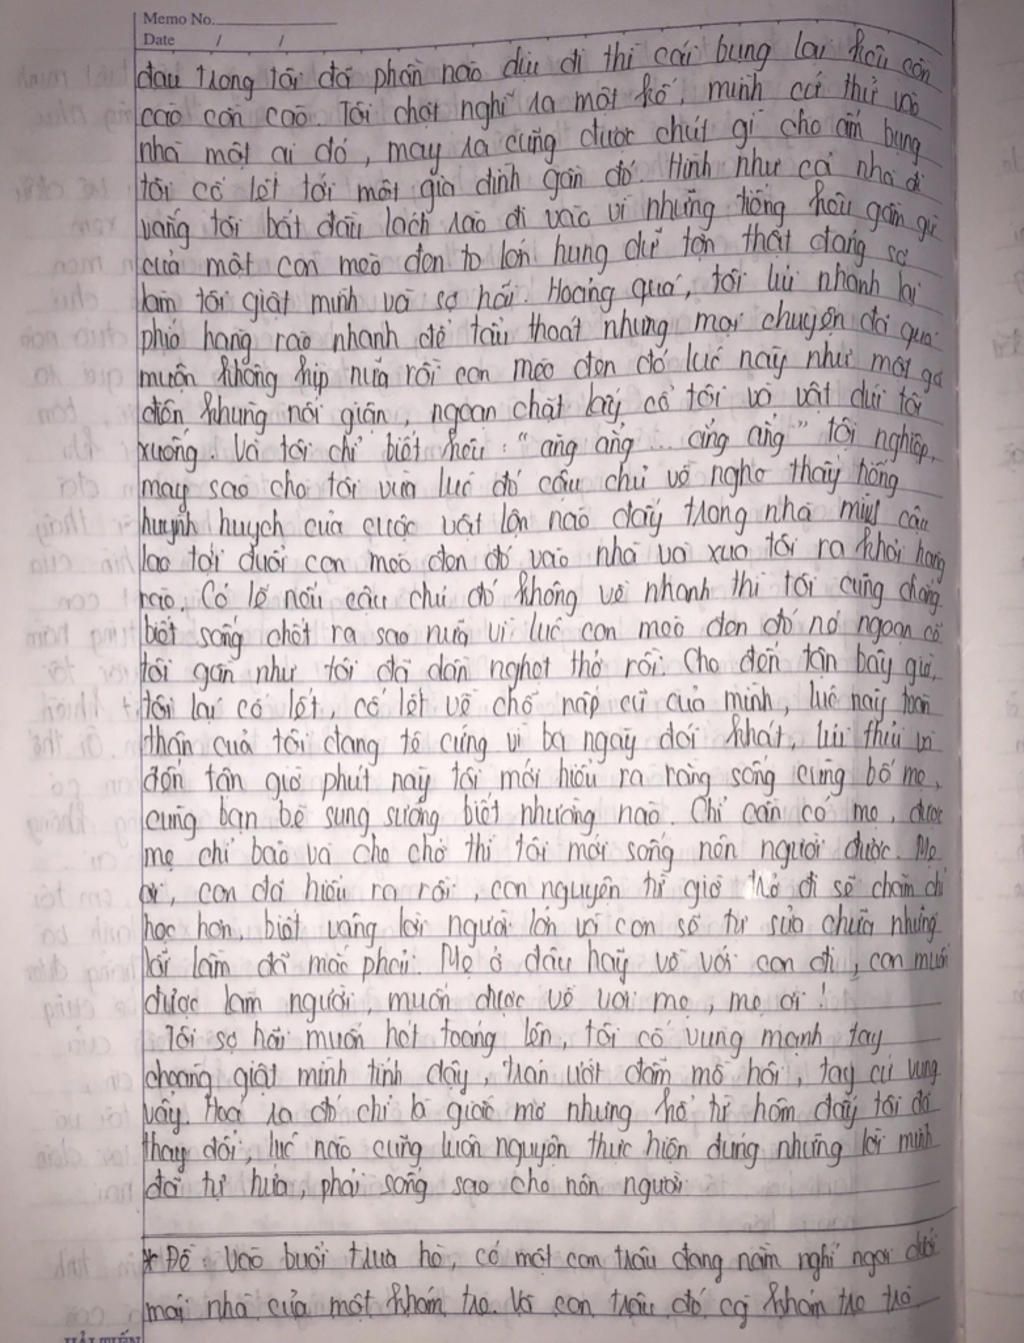 Memo No.
Date / /
đau trong tôi đã phần nào dịu đi thì cái bụng lại kêu cồn
cào cồn cào. Tôi chợt nghĩ ra một kế, mình cứ thử vào
nhà một ai đó, may ra cũng được chút gì cho ấm bụng
tôi cố lết tới một gia đình gần đó. Hình như cả nhà đi
vắng tôi bắt đầu lách rào đi vào vì những tiếng kêu gầm gừ
của một con mèo đen to lớn hung dữ tợn thật đáng sợ
làm tôi giật mình và sợ hãi. Hoảng quá, tôi lùi nhanh lại
phía hàng rào nhanh để tẩu thoát nhưng mọi chuyện đã quá
muộn không kịp nữa rồi con mèo đen đó lúc này như một gã
điên khùng nổi giận, ngoạm chặt lấy cổ tôi và vật dúi tôi
xuống. Và tôi chỉ biết kêu: "ăng ẳng... ẳng ẳng" tội nghiệp,
may sao cho tôi vừa lúc đó cậu chủ về nghe thấy tiếng
huỳnh huỵch của cuộc vật lộn nào đấy trong nhà mình cậu
lao tới đuổi con mèo đen đó vào nhà và xua tôi ra khỏi hàng
rào. Có lẽ nếu cậu chủ đó không về nhanh thì tôi cũng chẳng
biết sống chết ra sao nữa vì lúc con mèo đen đó nó ngoạm cổ
tôi gần như tôi đã dần nghẹt thở rồi. Cho đến tận bây giờ,
tôi lại cố lết, cố lết về chỗ nấp cũ của mình, lúc này toàn
thân của tôi đang tê cứng vì ba ngày đói khát, lủi thủi và
đến tận giờ phút này tôi mới hiểu ra rằng sống cùng bố mẹ,
cùng bạn bè sung sướng biết nhường nào. Chỉ cần có mẹ, được
mẹ chỉ bảo và che chở thì tôi mới sống nên người được. Mẹ
ơi, con đã hiểu ra rồi, con nguyện từ giờ trở đi sẽ chăm chỉ
học hơn, biết vâng lời người lớn và con sẽ tự sửa chữa những
lỗi lầm đã mắc phải. Mẹ ở đâu hãy về với con đi, con muốn
được làm người, muốn được về với mẹ, mẹ ơi!
Tôi sợ hãi muốn hét toáng lên, tôi cố vung mạnh tay
choàng giật mình tỉnh dậy, trán ướt đẫm mồ hôi, tay cứ vung
vẩy. Hoá ra đó chỉ là giấc mơ nhưng kể từ hôm đấy tôi đã
thay đổi, lúc nào cũng luôn nguyện thực hiện đúng những lời mình
đã tự hứa, phải sống sao cho nên người
* Đề: Vào buổi trưa hè, có một con trâu đang nằm nghỉ ngơi dưới
mái nhà của một khóm tre. Và con trâu đó cọ khóm tre trò